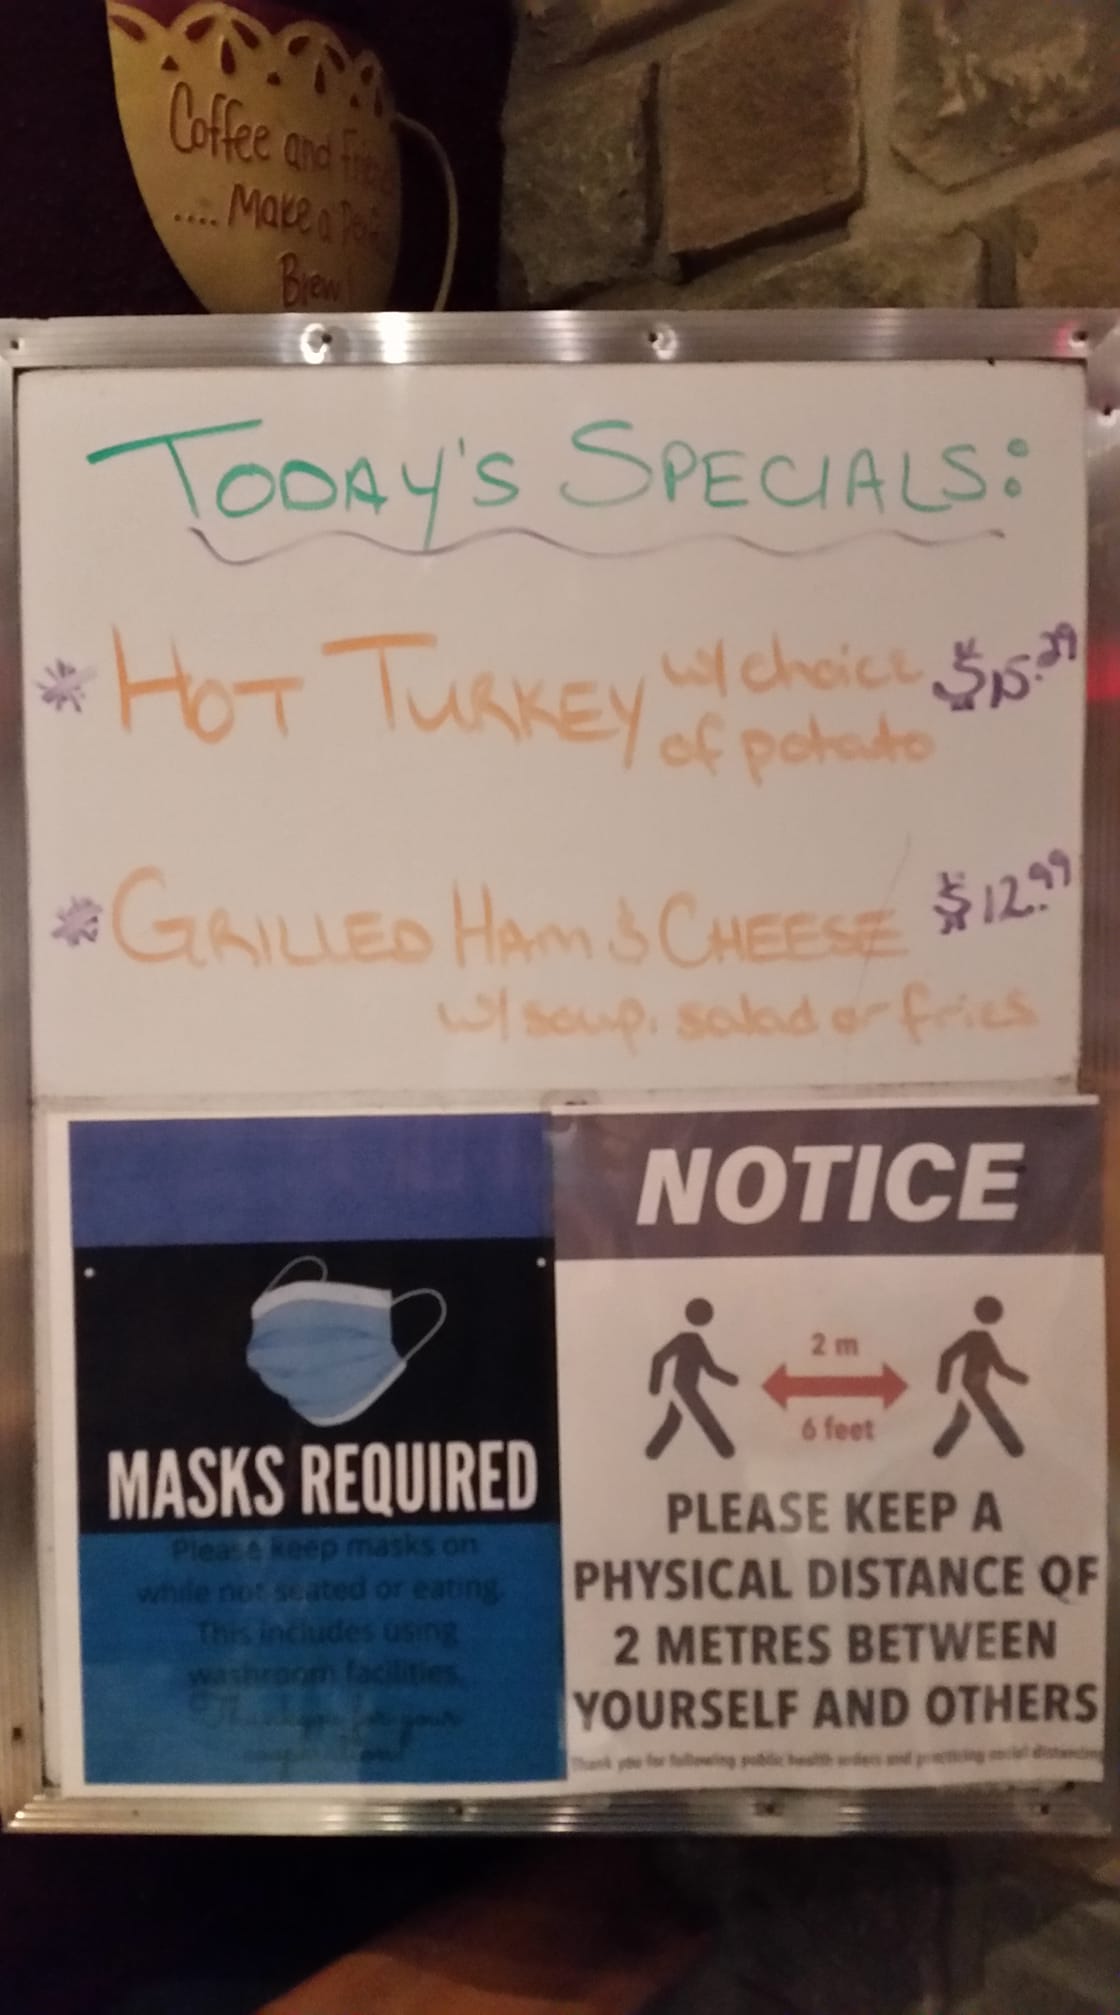 Coffee and
.... Make a
Brew!
TODAY'S SPECIALS:
* HOT TURKEY w/ choice of potato $15.29
* GRILLED HAM & CHEESE $12.99
w/ soup, salad or fries
NOTICE
2 m
6 feet
MASKS REQUIRED
Please keep masks on
while not seated or eating.
This includes using
washroom facilities.
Thank you for your
cooperation!
PLEASE KEEP A
PHYSICAL DISTANCE OF
2 METRES BETWEEN
YOURSELF AND OTHERS
Thank you for following public health orders and practicing social distancing